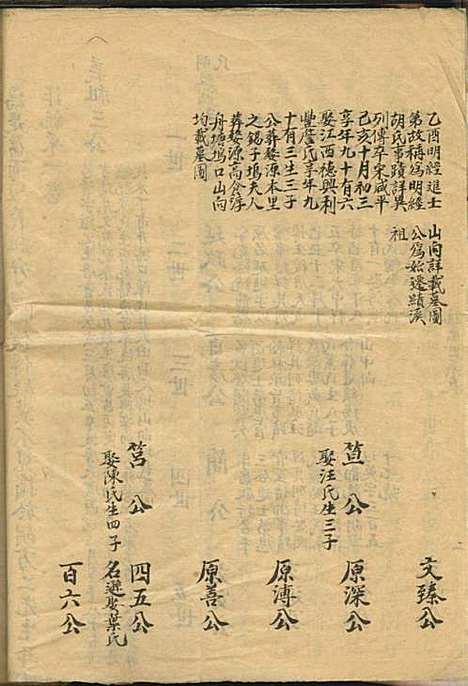 乙酉明經進士
第故稱爲明經
胡氏事蹟詳異
列傳卒宋咸平
己亥十月初三
享年九十有六
娶江西德興利
豐詹氏享年九
十有三生三子
公葬婺源本里
之錫子塢夫人
葬婺源高倉淳
舟塘塢口山向
均載墓圖
山向詳載墓圖
公爲始遷蹟溪
祖
文臻公
萱公
娶汪氏生三子
原深公
原溥公
原善公
筥公
娶陳氏生四子
四五公
名遜娶葉氏
百六公